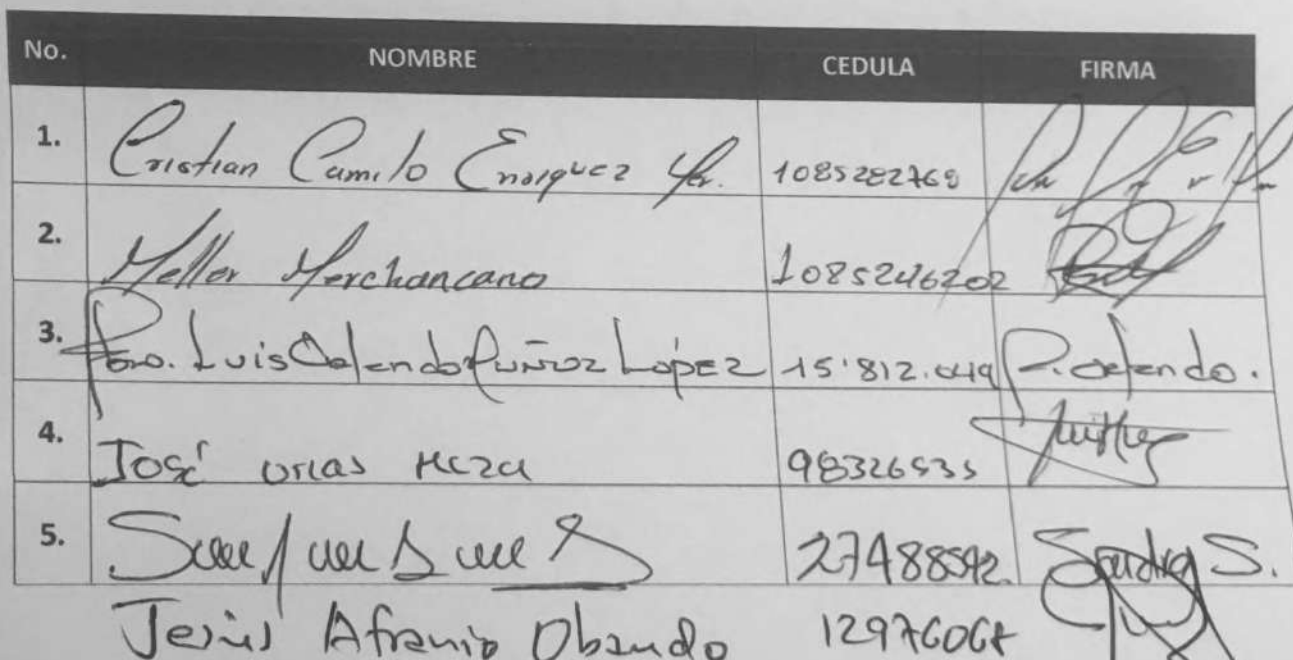 No. NOMBRE CEDULA FIRMA
1. Cristian Camilo Enriquez 1085282768
2. Meller Merchancano 1085246202
3. Pbro. Luis Orlando Muñoz López 15'812.049 P. Orlando.
4. José urias Meza 98326535
5. 27488592. Sandra S.
Jesús Afranio Obando